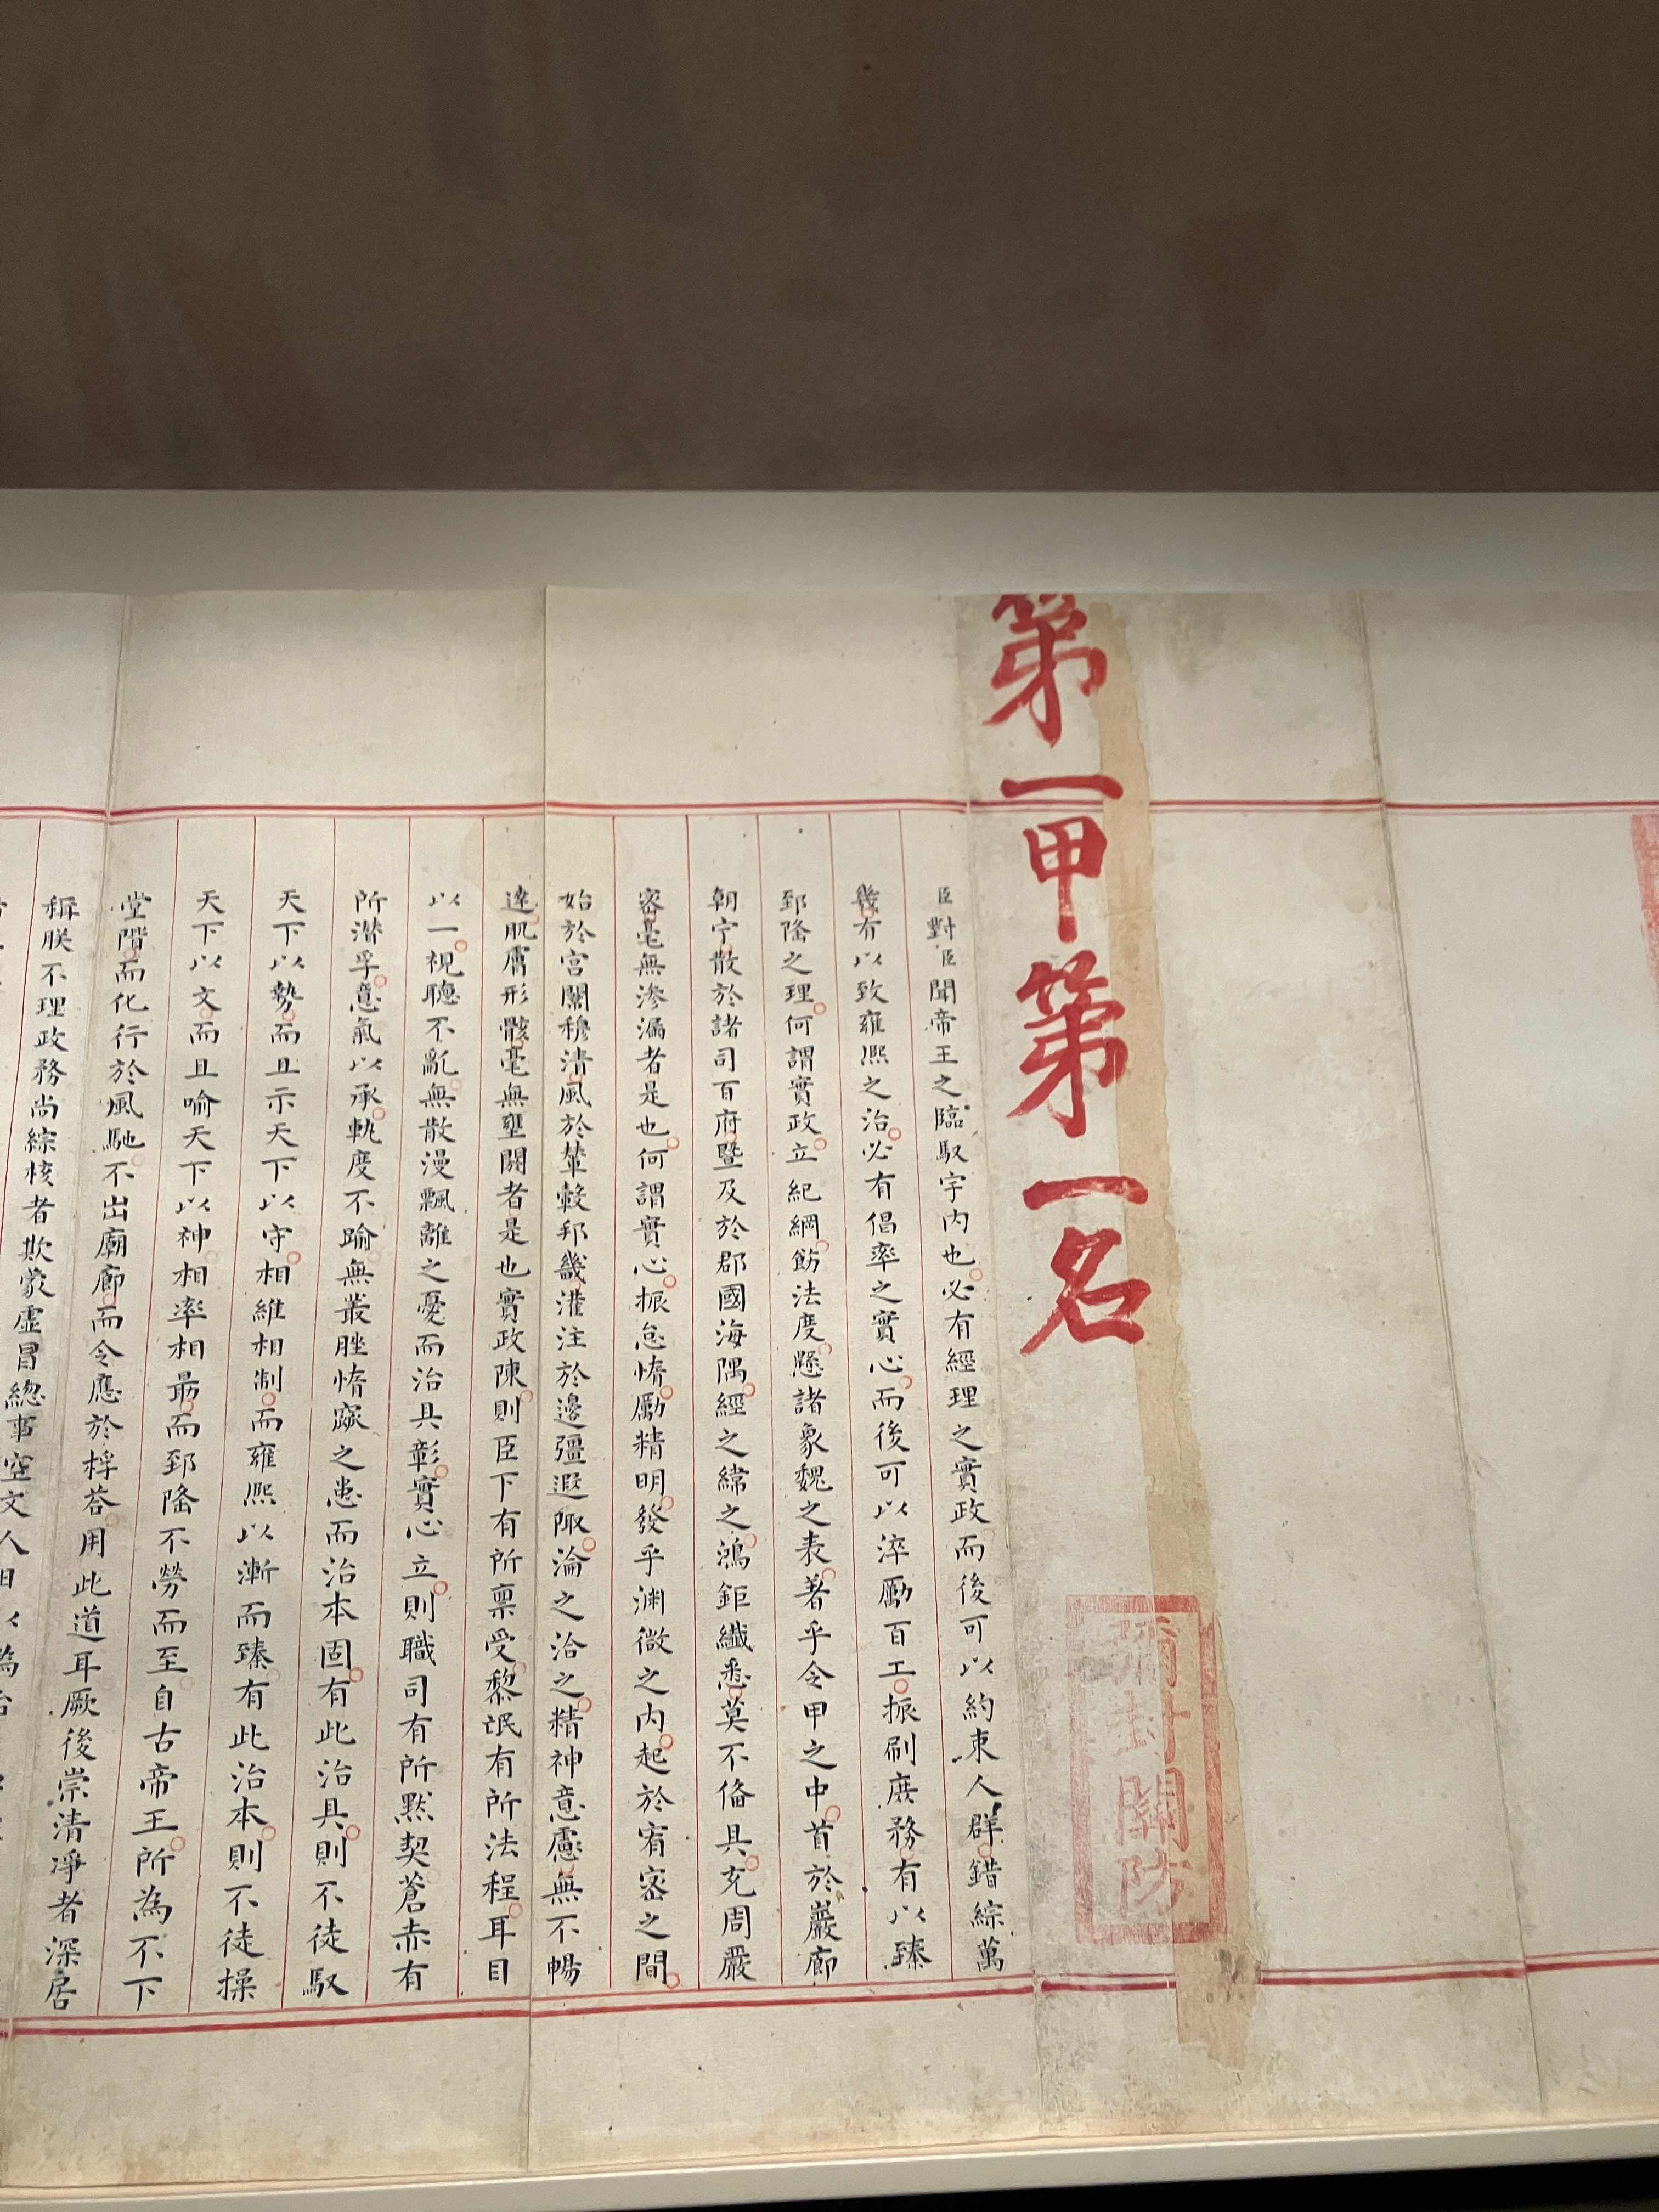 第一甲第一名
彌封關防
臣對臣聞帝王之臨馭宇内也必有經理之實政而後可以約束人群錯綜萬
幾有以致雍熈之治必有倡率之實心而後可以淬厲百工振刷庶務有以臻
郅隆之理何謂實政立紀綱飭法度懸諸象魏之表著乎令甲之中首於巖廊
朝宁散於諸司百府暨及於郡國海隅經之緯之鴻鉅纖悉莫不備具充周嚴
密毫無滲漏者是也何謂實心振怠惰勵精明發乎淵微之内起於宥密之間
始於宮闈穆清風於輦轂邦畿灌注於邊疆遐陬淪之洽之精神意慮無不暢
達肌膚形骸毫無壅閼者是也實政陳則臣下有所稟受黎氓有所法程耳目
以一視聽不亂無散漫飄離之憂而治具彰實心立則職司有所默契蒼赤有
所潛孚意氣以承軌度不踰無叢脞惰窳之患而治本固有此治具則不徒馭
天下以勢而且示天下以守相維相制而雍熈以漸而臻有此治本則不徒操
天下以文而且喻天下以神相率相最而郅隆不勞而至自古帝王所為不下
堂階而化行於風馳不出廟廊而令應於桴荅用此道耳厥後崇清凈者深居
稱朕不理政務尚綜核者欺蒙虛冒總事空文人